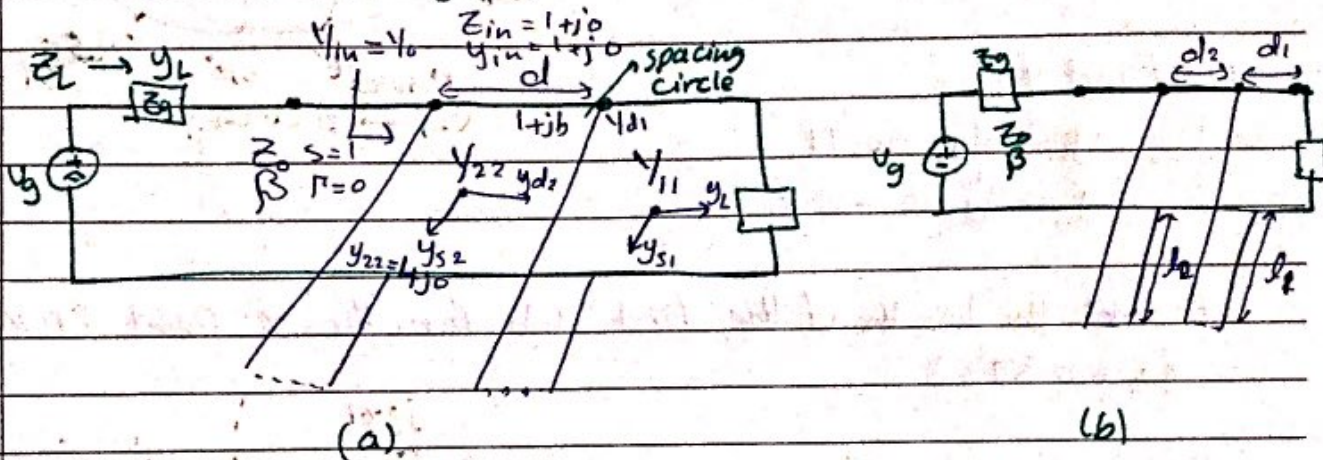 Z_L → y_L
Zg
Y_in = Y_0
Z_in = 1+j0
y_in = 1+j0
d
spacing circle
1+jb
Yd1
Z_0 S=1
β Γ=0
Vg
Y22
yd2
ys2
y22=1+j0
Y11
y_L
ys1
(a)
Zg
d2
d1
Vg
Z_0
β
l2
l1
(b)